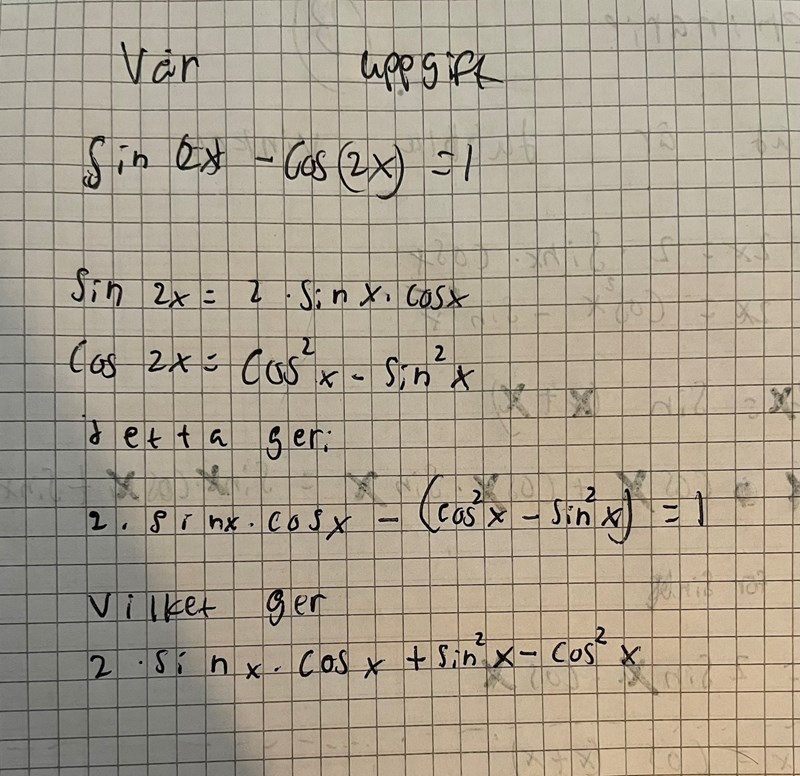 Vår uppgift
Sin 2x - Cos(2x) = 1
Sin 2x = 2 · Sin x · cosx
Cos 2x = Cos²x - Sin²x
detta ger:
2 · sinx · cosx - (cos²x - sin²x) = 1
Vilket ger
2 · sin x · cos x + sin²x - cos²x